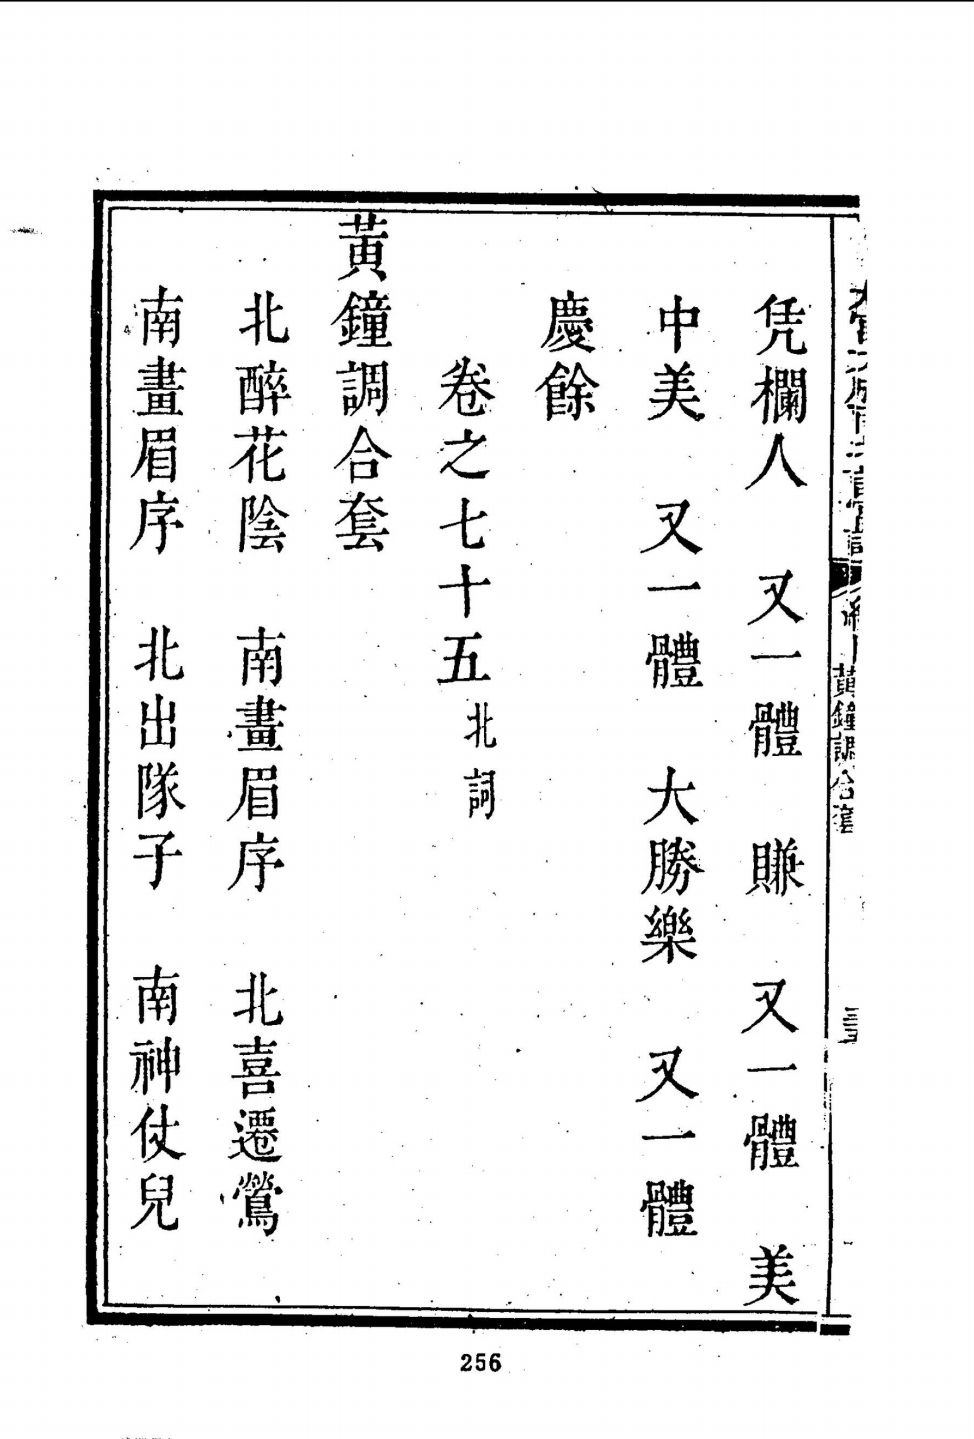 凭欄人　又一體　賺　又一體　美
中美　又一體　大勝樂　又一體
慶餘
卷之七十五 北詞
黃鐘調合套
北醉花陰　南畫眉序　北喜遷鶯
南畫眉序　北出隊子　南神仗兒
黃鐘調合套
256